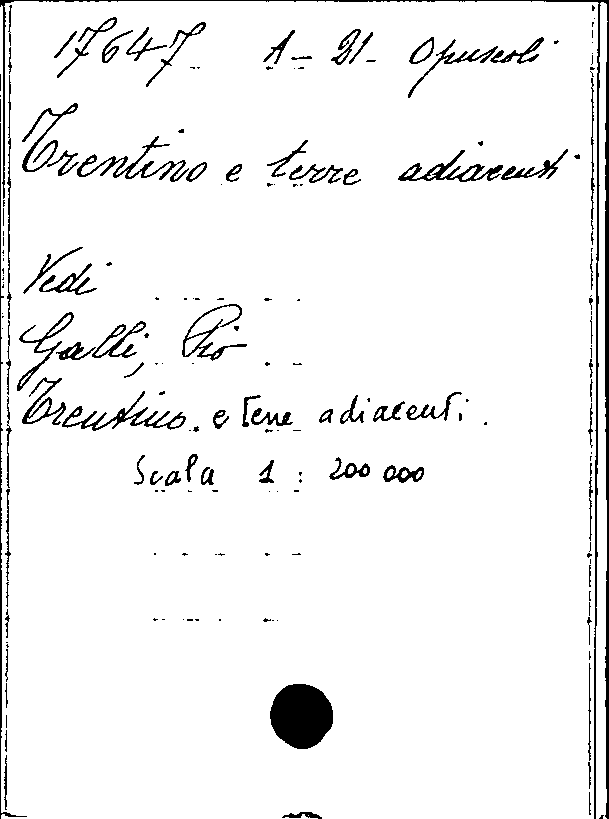 17647 A - 21 - Opuscoli
Trentino e terre adiacenti
Vedi
Galli, Pio
Trentino. e terre adiacenti.
Scala 1 : 200 000